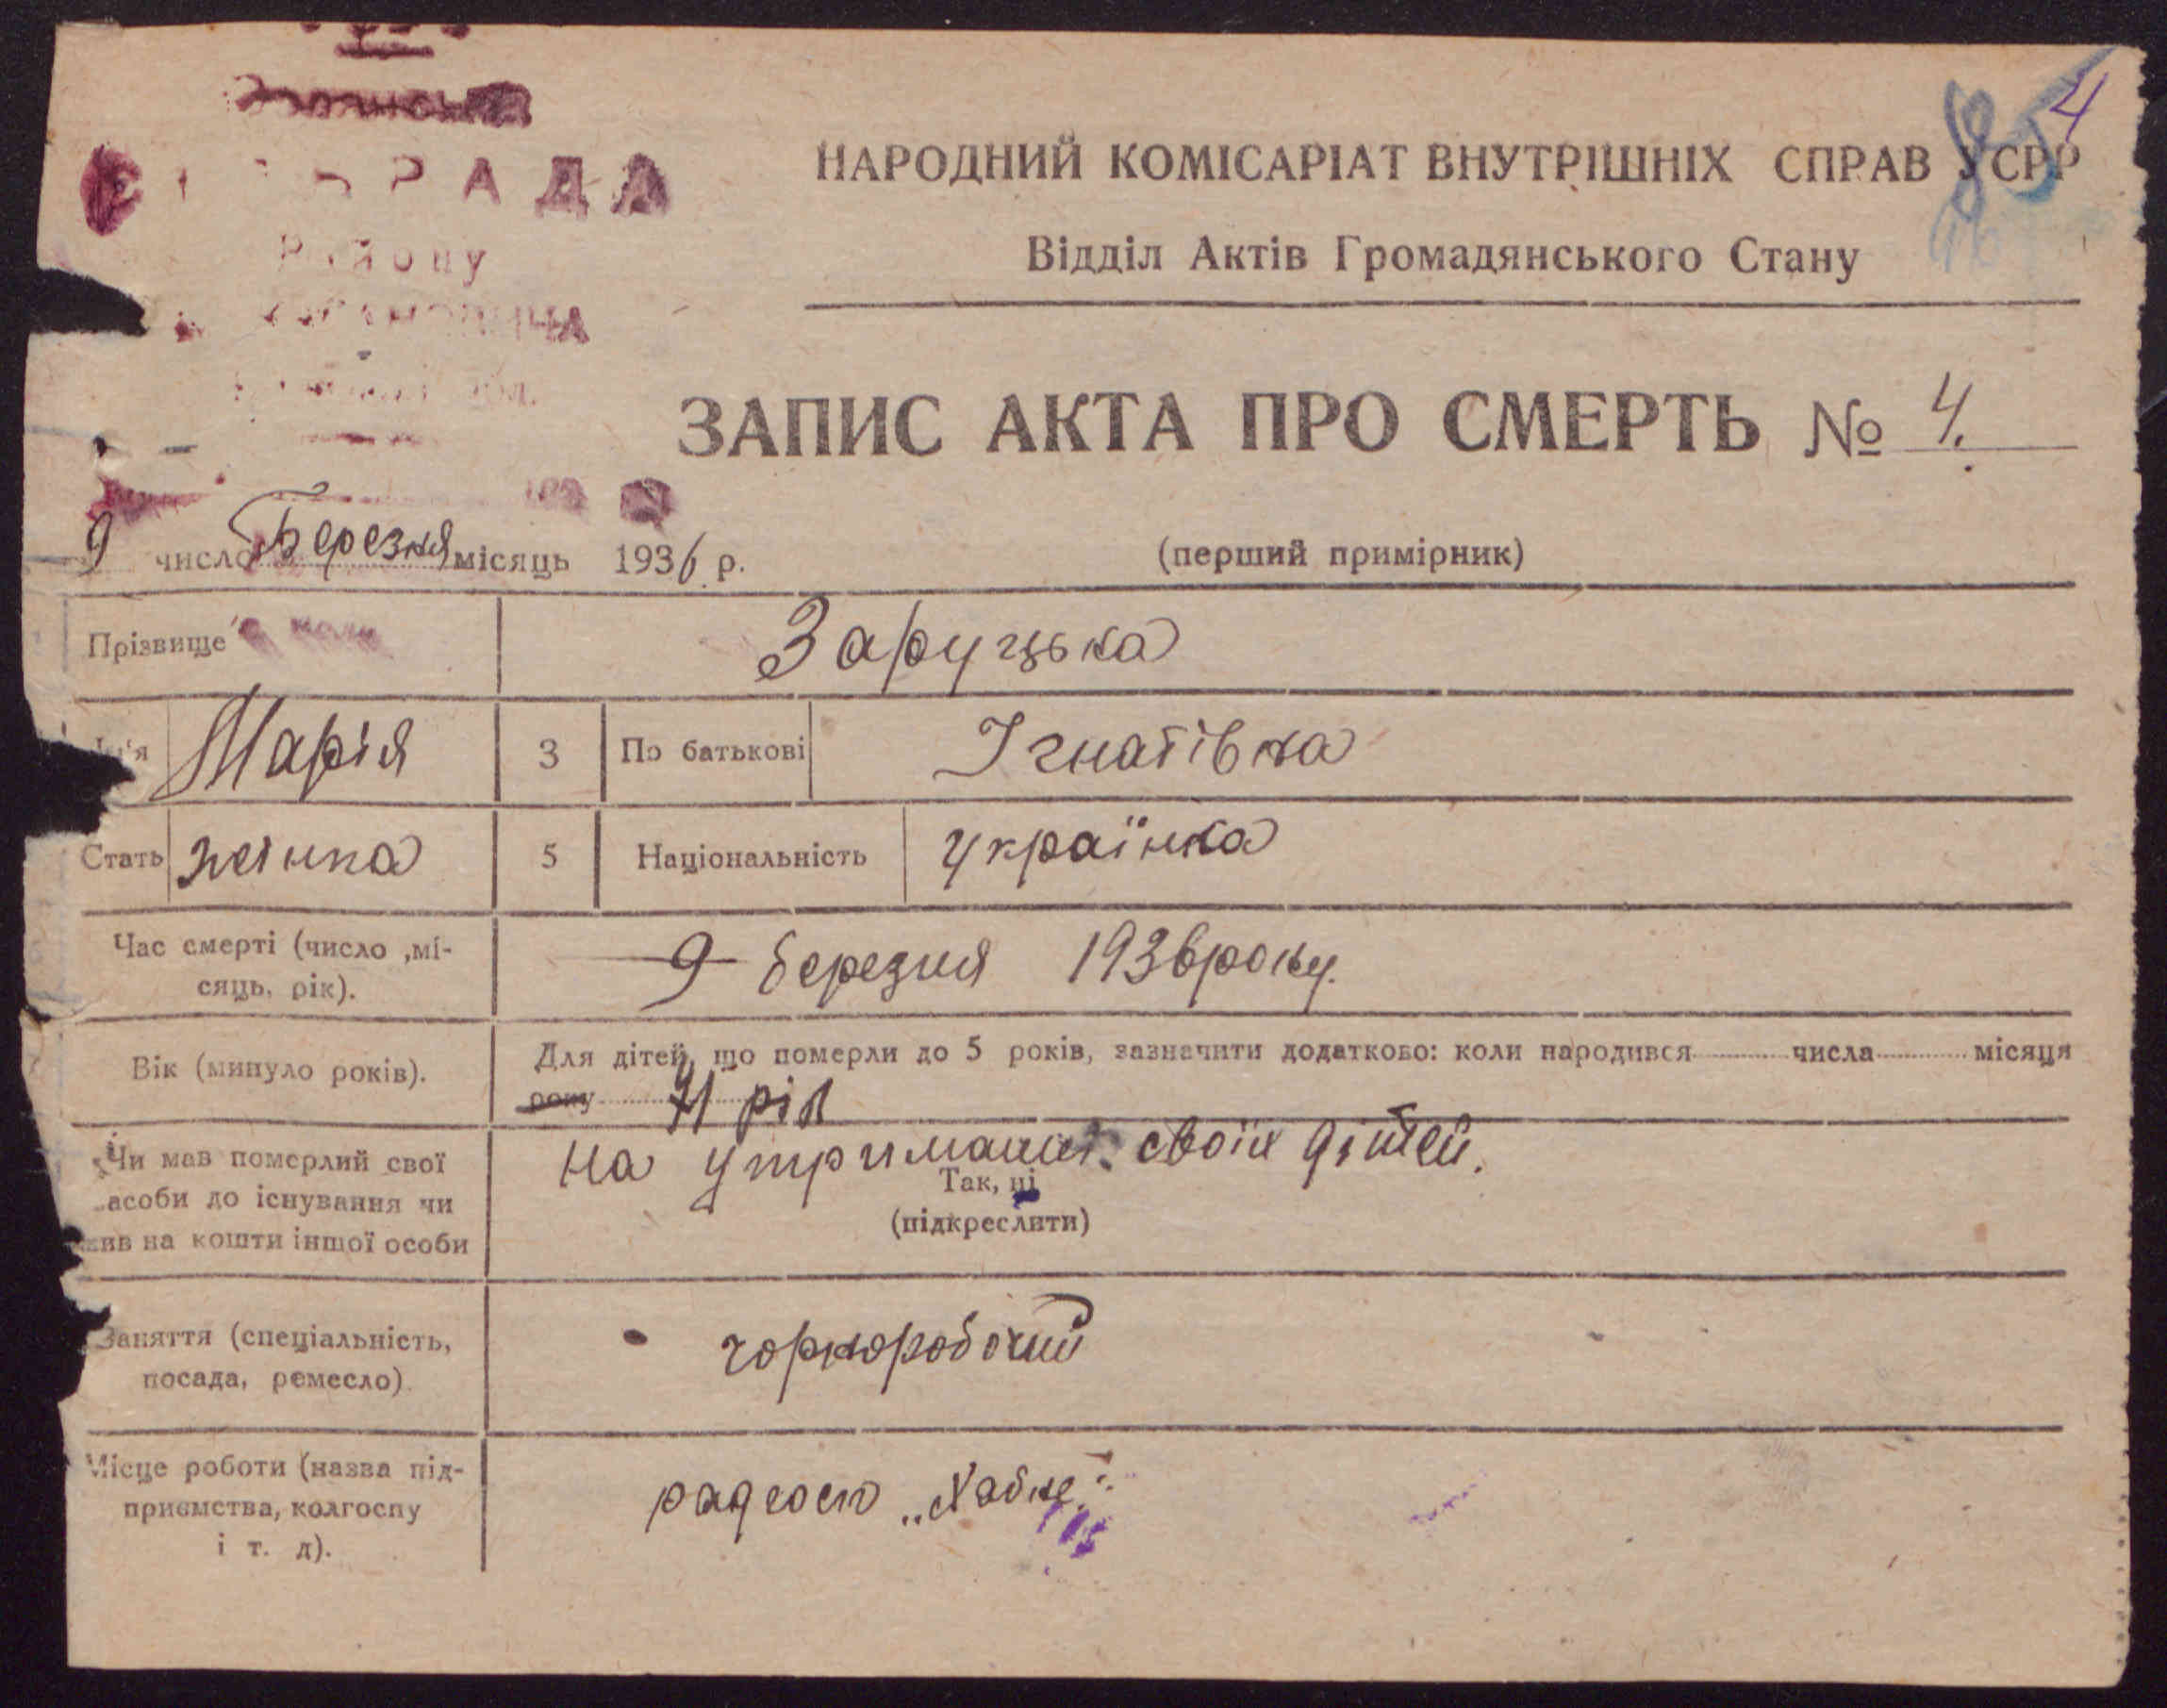 РАДА
Району
обл.
4
НАРОДНИЙ КОМІСАРІАТ ВНУТРІШНІХ СПРАВ УСРР
Відділ Актів Громадянського Стану
ЗАПИС АКТА ПРО СМЕРТЬ № 4.
9 число Березня місяць 1936 р.
(перший примірник)
Прізвище Заруцька
Ім'я Марія 3 По батькові Ігнатівна
Стать жінка 5 Національність українка
Час смерті (число ,мі-
сяць, рік).
9 березня 1936 року.
Вік (минуло років).
Для дітей, що померли до 5 років, зазначити додатково: коли народився числа місяця
року 71 рік
Чи мав померлий свої
засоби до існування чи
жив на кошти іншої особи
на утриманні своїх дітей.
Так, ні
(підкреслити)
Заняття (спеціальність,
посада, ремесло)
чорноробочий
Місце роботи (назва під-
приємства, колгоспу
і т. д).
радгосп „Хабне"